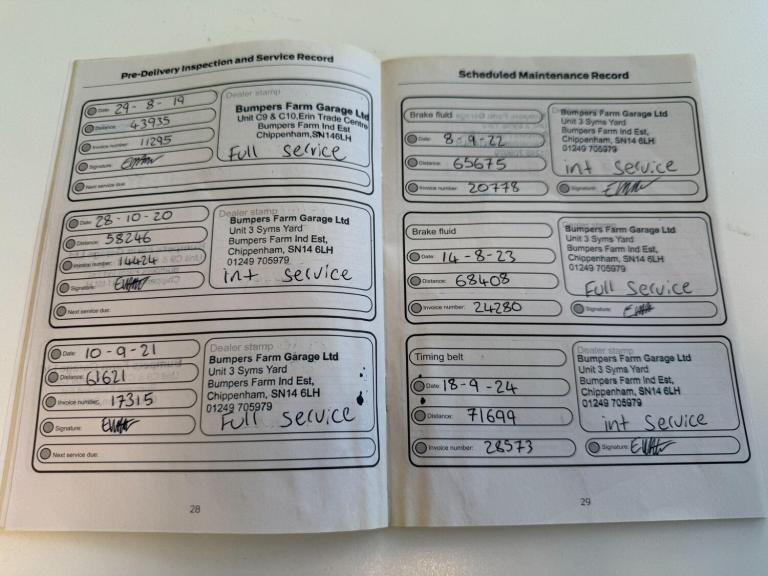 Pre-Delivery Inspection and Service Record
Dealer stamp
Date: 29-8-19
Distance: 43935
Invoice number: 11295
Signature:
Next service due:
Bumpers Farm Garage Ltd
Unit C9 & C10,Erin Trade Centre
Bumpers Farm Ind Est
Chippenham,SN146LJ
Full Service
Dealer stamp
Date: 28-10-20
Distance: 58246
Invoice number: 14424
Signature:
Next service due:
Bumpers Farm Garage Ltd
Unit 3 Syms Yard
Bumpers Farm Ind Est,
Chippenham, SN14 6LH
01249 705979
int Service
Dealer stamp
Date: 10-9-21
Distance: 61621
Invoice number: 17315
Signature:
Next service due:
Bumpers Farm Garage Ltd
Unit 3 Syms Yard
Bumpers Farm Ind Est,
Chippenham, SN14 6LH
01249 705979
Full Service
28
Scheduled Maintenance Record
Brake fluid
Date: 8-9-22
Distance: 65675
Invoice number: 20778
Bumpers Farm Garage Ltd
Unit 3 Syms Yard
Bumpers Farm Ind Est,
Chippenham, SN14 6LH
01249 705979
int Service
Signature:
Brake fluid
Date: 14-8-23
Distance: 68408
Invoice number: 24280
Dealer stamp
Bumpers Farm Garage Ltd
Unit 3 Syms Yard
Bumpers Farm Ind Est,
Chippenham, SN14 6LH
01249 705979
Full Service
Signature:
Timing belt
Date: 18-9-24
Distance: 71699
Invoice number: 28573
Dealer stamp
Bumpers Farm Garage Ltd
Unit 3 Syms Yard
Bumpers Farm Ind Est,
Chippenham, SN14 6LH
01249 705979
int Service
Signature:
29